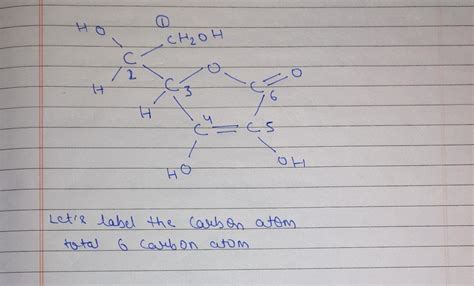 ①
HO CH2OH
C O O
2 C
H C 6
3
H
4
C C 5
HO OH
Let's label the Carbon atom
total 6 Carbon atom